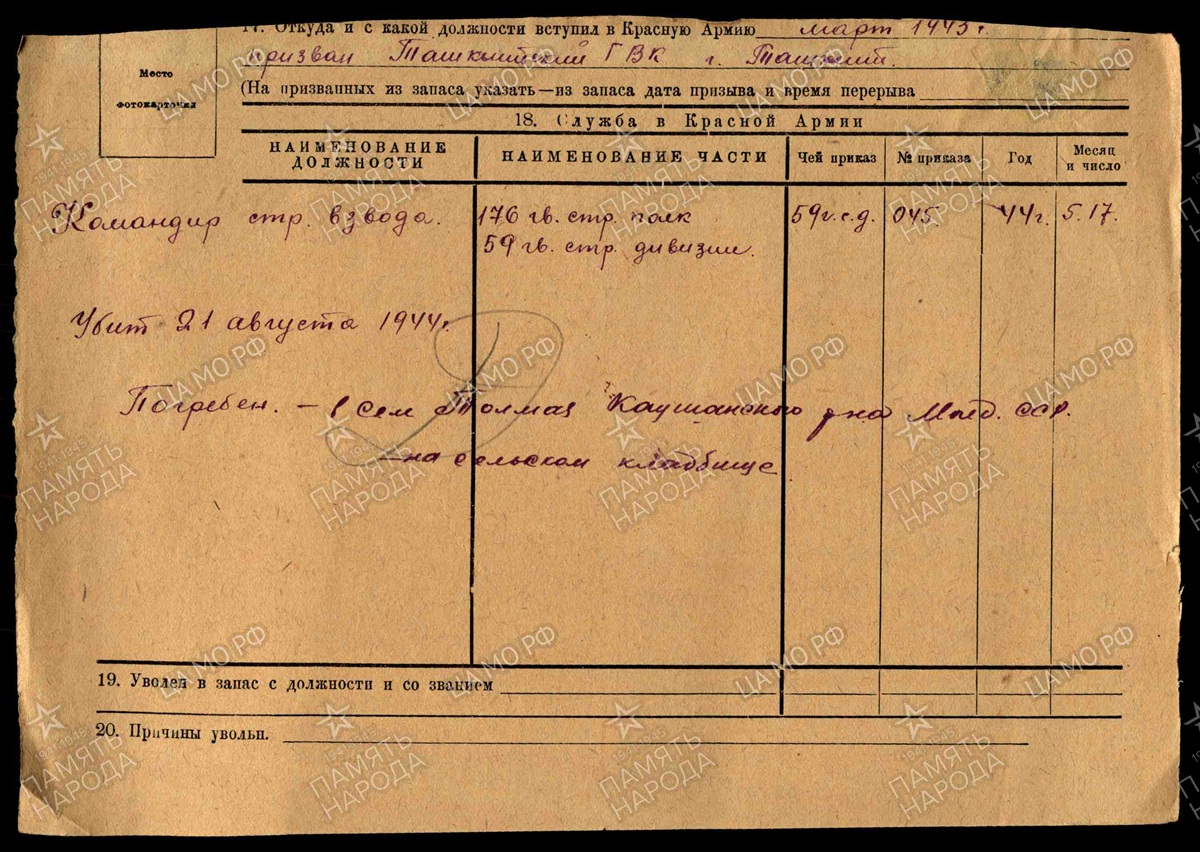 17. Откуда и с какой должности вступил в Красную Армию март 1943 г.
призван Ташкентский ГВК г. Ташкент.
Место
фотокарточки
(На призванных из запаса указать—из запаса дата призыва и время перерыва
18. Служба в Красной Армии
НАИМЕНОВАНИЕ ДОЛЖНОСТИ НАИМЕНОВАНИЕ ЧАСТИ Чей приказ № приказа Год Месяц и число
Командир стр. взвода. 176 гв. стр. полк 59 г.с.д. 045. 44 г. 5.17.
59 гв. стр. дивизии.
Убит 21 августа 1944 г.
Погребен. — в Толмаз Каушанского р-на Молд. ССР.
— на сельском кладбище
19. Уволен в запас с должности и со званием
20. Причины увольн.
ЦАМО.РФ
1941-1945
ПАМЯТЬ
НАРОДА